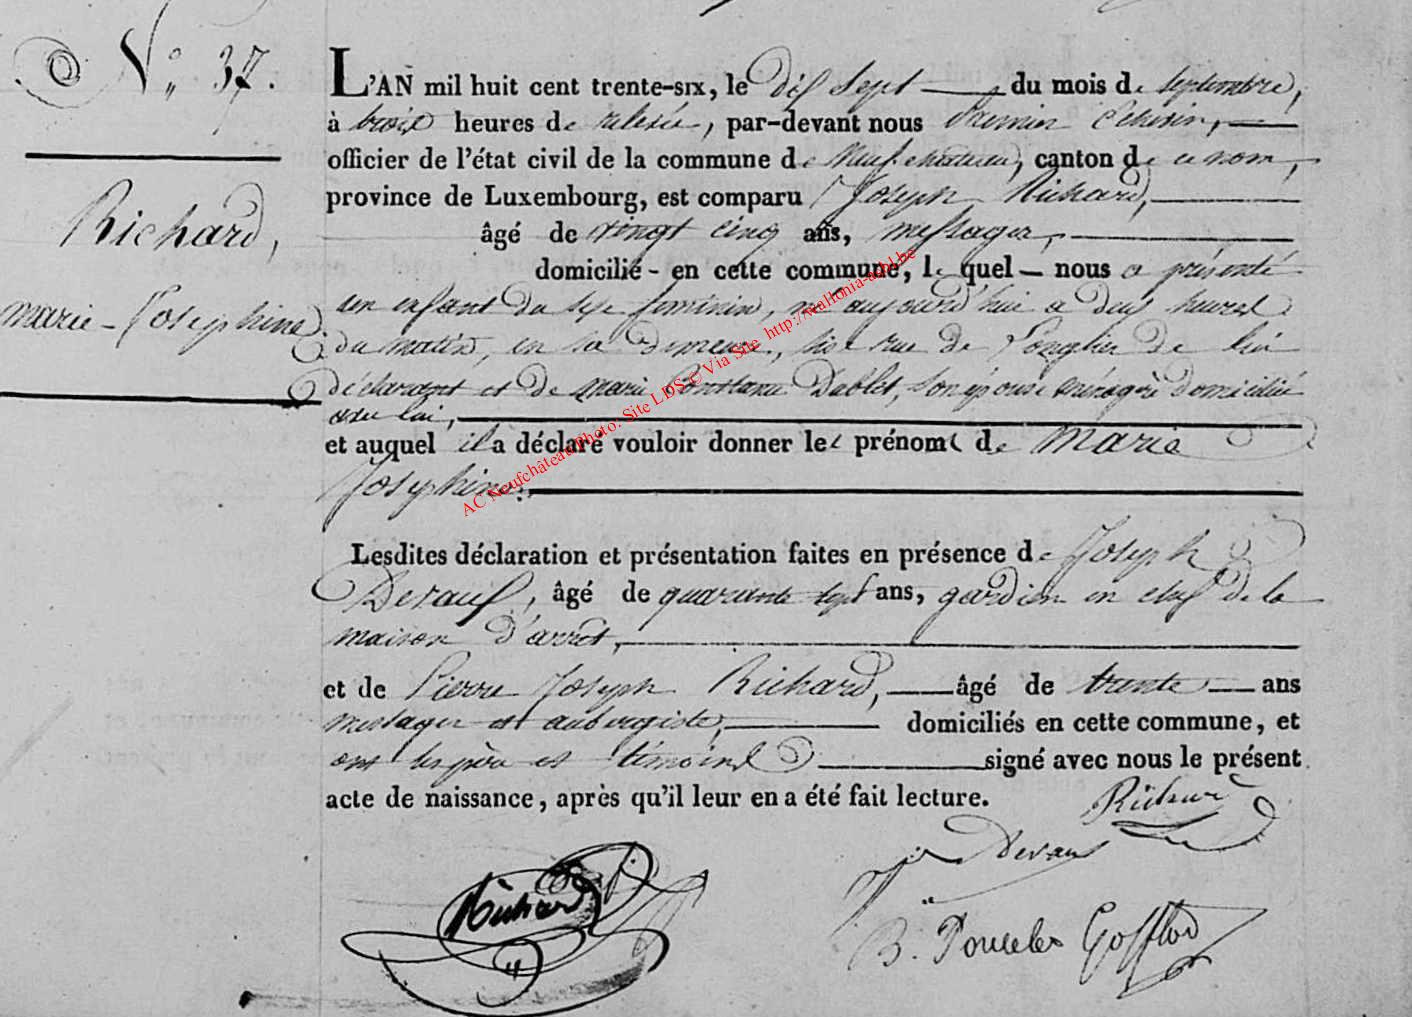 N° 37.
Richard,
Marie-Josephine.
L'AN mil huit cent trente-six, le dix sept du mois de septembre,
à trois heures de relevée, par-devant nous Premier Echevin,
officier de l'état civil de la commune de Neufchateau, canton de ce nom,
province de Luxembourg, est comparu Joseph Richard,
âgé de vingt cinq ans, messager,
domicilié - en cette commune, lequel - nous a présenté
un enfant du sexe feminin, né aujourd'hui a deux heures
du matin, en sa demeure, sise rue de Longlier de lui
déclarant et de Marie Constance Dablet, son épouse ménagère domiciliée
avec lui,
et auquel il a déclaré vouloir donner les prénoms de Marie
Josephine.
Lesdites déclaration et présentation faites en présence de Joseph
Devaux, âgé de quarante sept ans, gardien en chef de la
maison d'arrêt,
et de Pierre Joseph Richard, âgé de trente ans
messager et aubergiste, domiciliés en cette commune, et
ont les père et témoins signé avec nous le présent
acte de naissance, après qu'il leur en a été fait lecture.
Richard
Devaux
Richard
B. Poncelet Gofflot
AC Neufchâteau Photo. Site LDS © Via Site http://wallonia-asbl.be